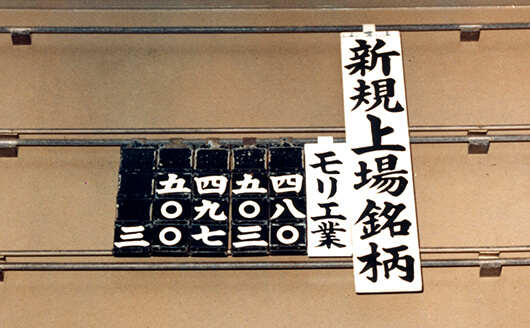 新規上場銘柄
モリ工業
四八〇
五〇三
四九七
五〇〇
三